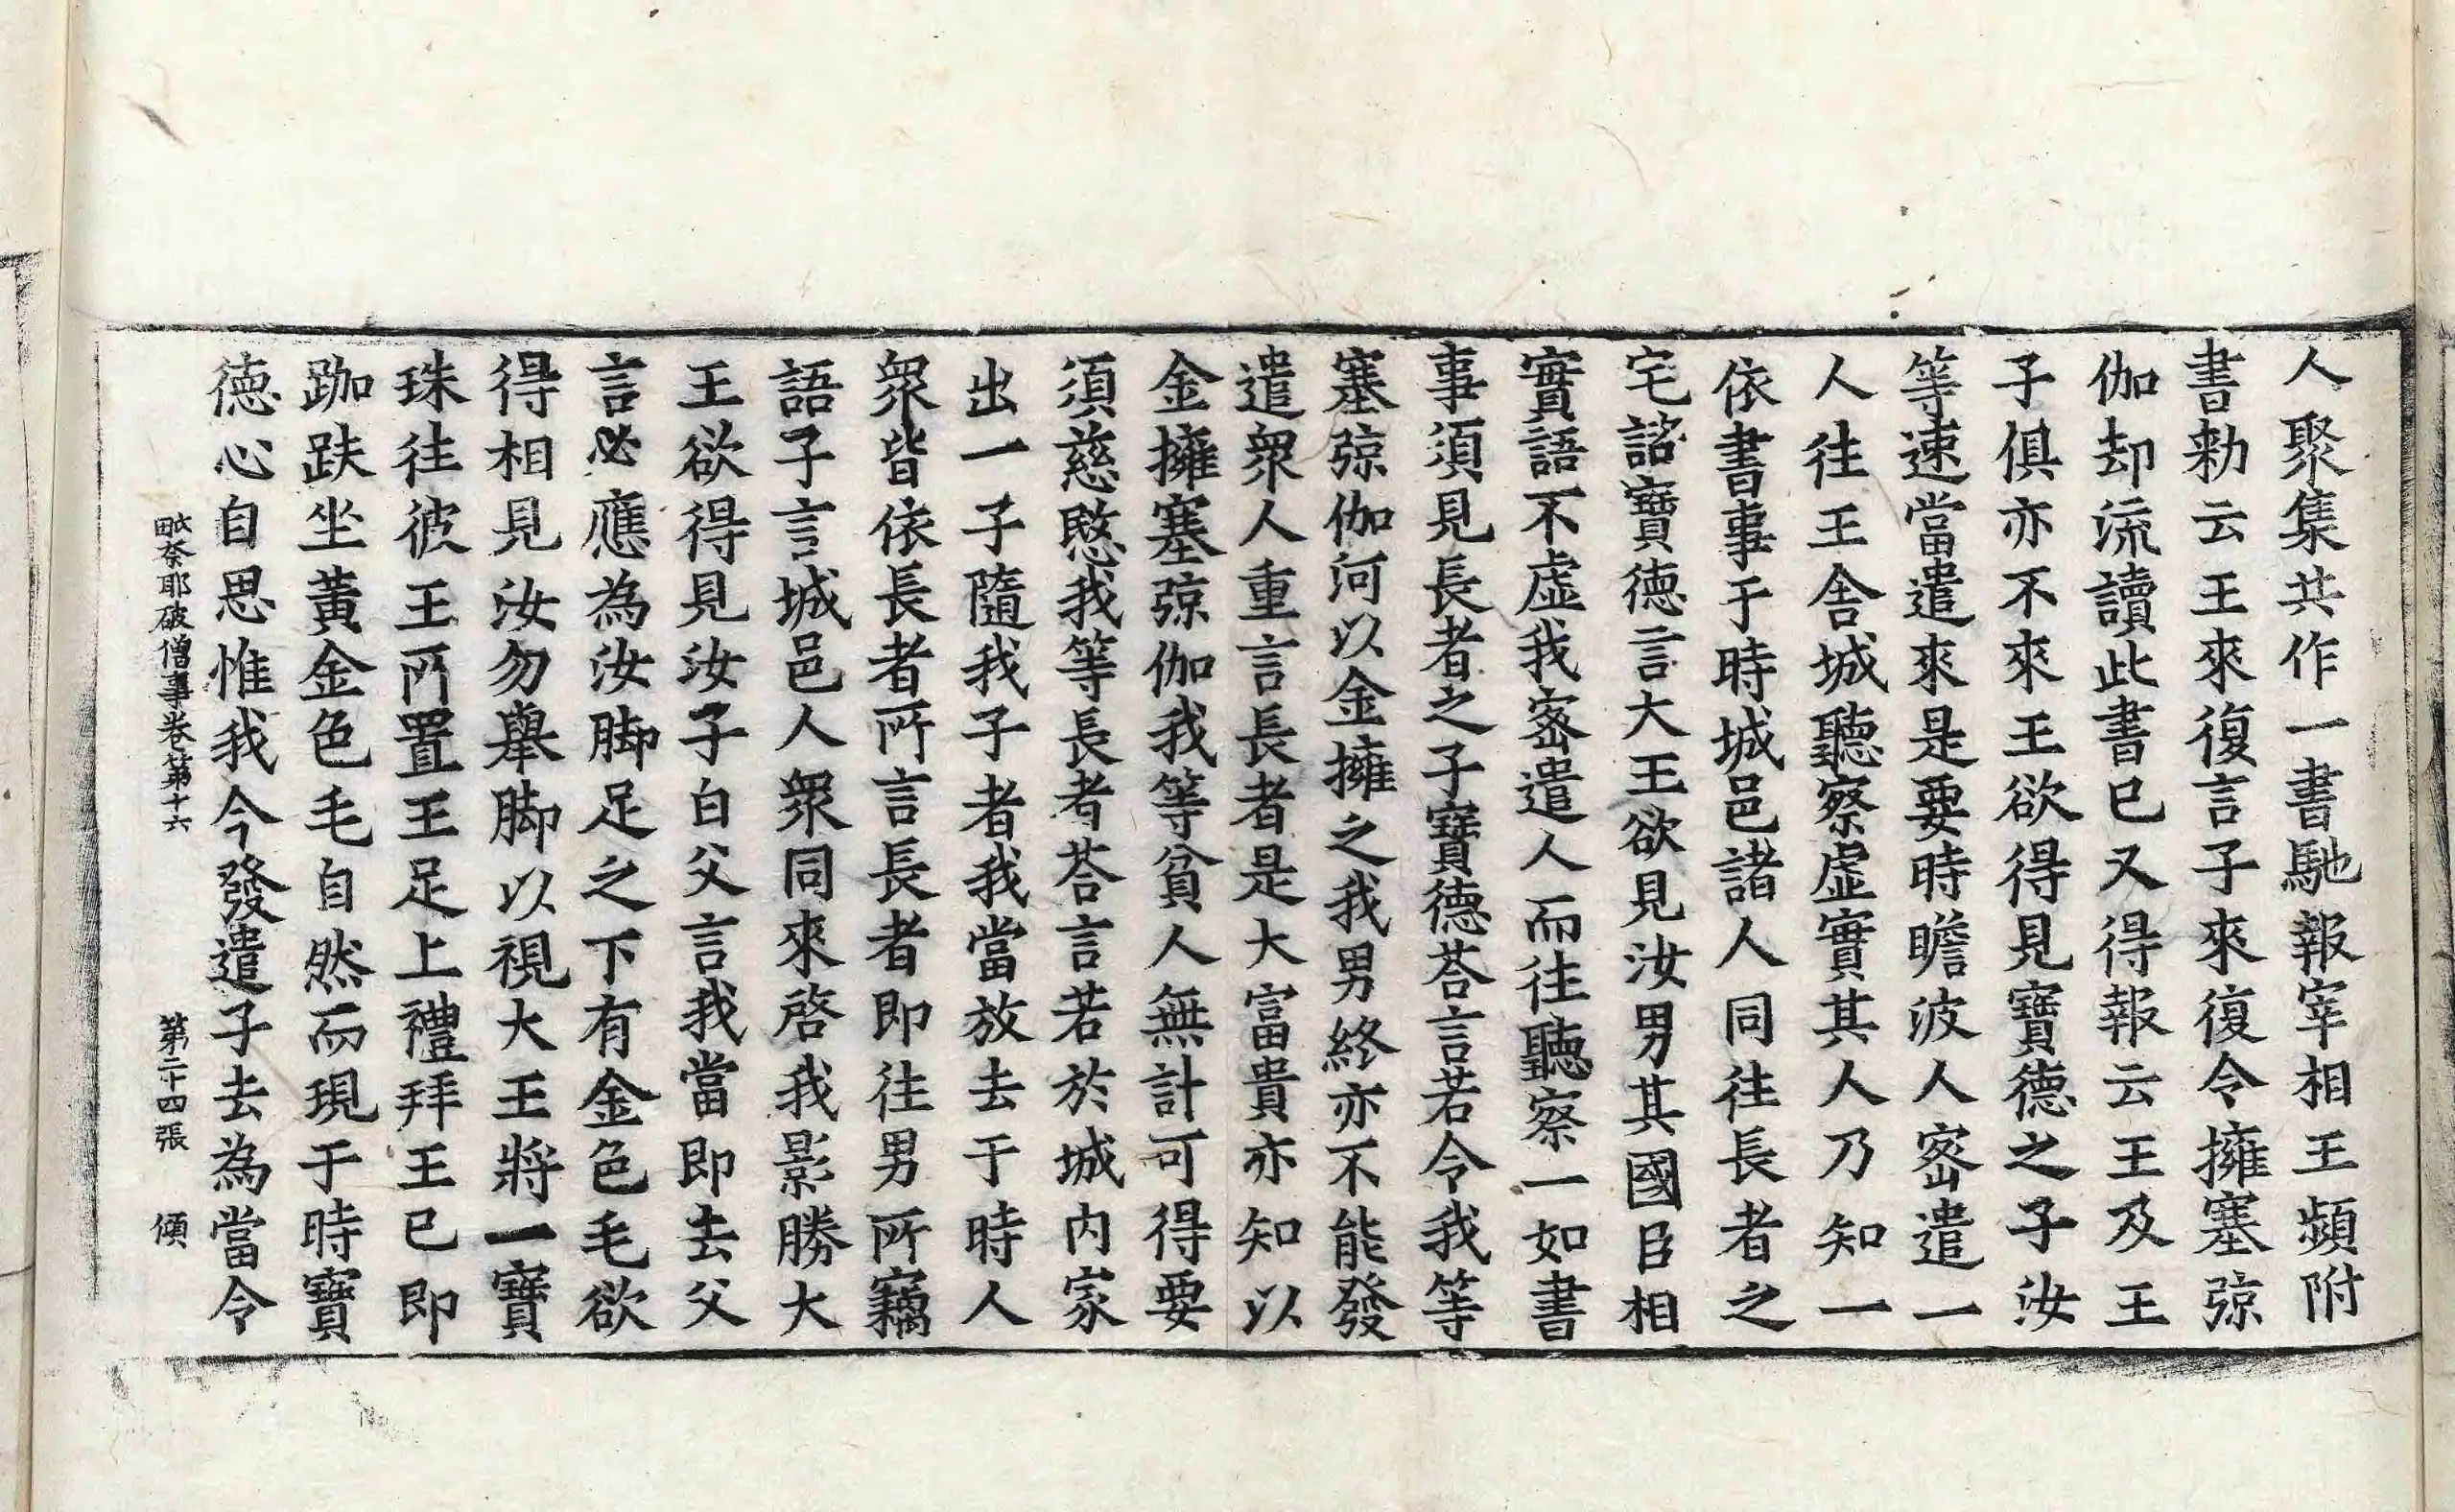 人聚集共作一書馳報宰相王頻附
書勑云王來復言子來復令擁塞弶
伽却流讀此書已又得報云王及王
子俱亦不來王欲得見寶德之子汝
等速當遣來是要時瞻波人密遣一
人往王舍城聽察虛實其人乃知一
依書事于時城邑諸人同往長者之
宅諮寶德言大王欲見汝男其國臣相
實語不虛我密遣人而往聽察一如書
事須見長者之子寶德荅言若令我等
塞弶伽河以金擁之我男終亦不能發
遣衆人重言長者是大富貴亦知以
金擁塞弶伽我等貧人無計可得要
須慈愍我等長者荅言若於城内家
出一子隨我子者我當放去于時人
衆皆依長者所言長者即往男所竊
語子言城邑人衆同來啓我影勝大
王欲得見汝子白父言我當即去父
言必應為汝脚足之下有金色毛欲
得相見汝勿舉脚以視大王將一寶
珠往彼王所置王足上禮拜王已即
跏趺坐黃金色毛自然而現于時寶
德心自思惟我今發遣子去為當令
毗奈耶破僧事卷第十六 第二十四張 傾